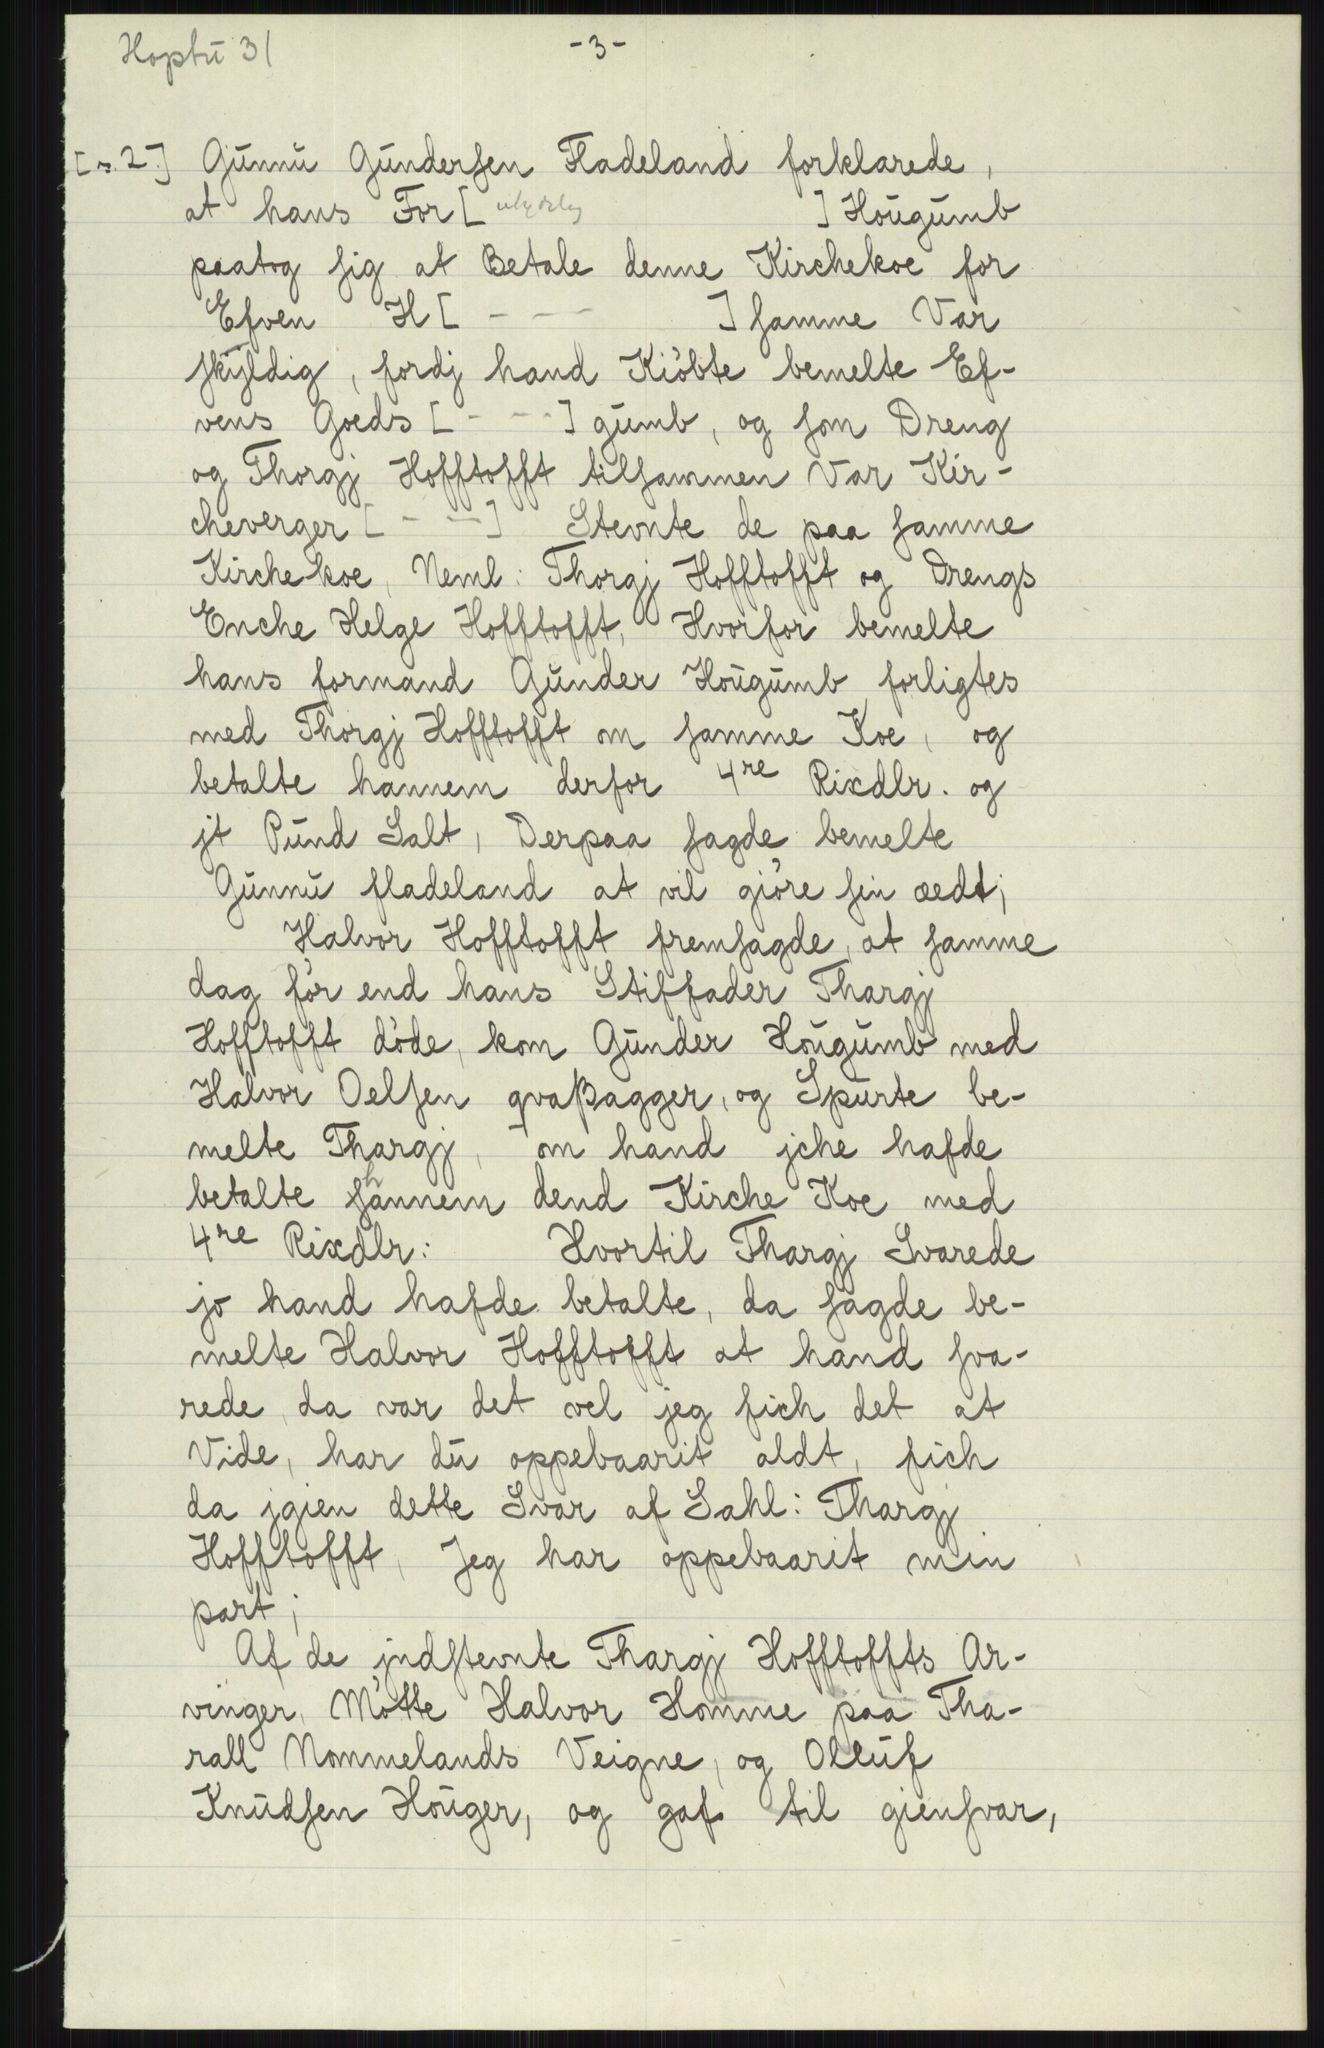 Hoptü 31
-3-
[s. 2.] Günnü Gündersen Fladeland forklarede,
at hans For[ utydelig ] Hoügümb
paatog sig at Betale denne Kirchekoe for
Efven H[ - - - ] samme Var
skÿldig, fordj hand Kiöbte bemelte Ef-
vens Goeds [ - - - ] gümb, og som Dreng
og Thorgj Hofftofft tilsammen Var Kir-
cheverger [ - - ] Stevnte de paa samme
Kirchekoe, Neml: Thorgj Hofftofft og Drengs
Enche Helge Hofftofft, Hvorfor bemelte
hans formand Günder Hoügümb forligtes
med Thorgj Hofftofft om samme Koe, og
betalte hannem derfor 4re Rixdlr. og
jt Pünd Salt, Derpaa sagde bemelte
Günnü fladeland at vil giöre sin æedt;
Halvor Hofftofft fremsagde, at samme
dag för end hans Stiffader Thargj
Hofftofft döde, kom Günder Hoügümb med
Halvor Oelsen qvaßagger, og Spürte be-
melte Thargj, om hand jche hafde
betalte hannem dend Kirche Koe med
4re Rixdlr: Hvortil Thargj Svarede
jo hand hafde betalte, da sagde be-
melte Halvor Hofftofft at hand sva-
rede, da var det vel jeg fich det at
Vide, har dü oppebaarit aldt, fich
da jgien dette Svar af Sahl: Thargj
Hofftofft, Jeg har oppebaarit min
part;
Af de jndstevnte Thargj Hofftoffts Ar-
vinger, Mötte Halvor Homme paa Tha-
rall Nommelands Veigne, og Ollüf
Knüdsen Hoüger, og gaf til giensvar,